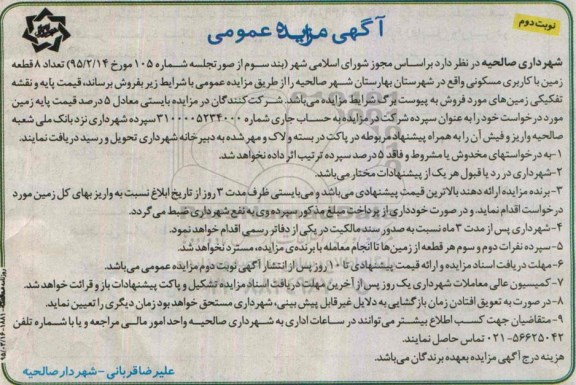 نوبت دوم
آگهی مزایده عمومی
شهرداری صالحیه در نظر دارد براساس مجوز شورای اسلامی شهر (بند سوم از صورتجلسه شماره ۱۰۵ مورخ ۹۵/۲/۱۴) تعداد ۸ قطعه
زمین با کاربری مسکونی واقع در شهرستان بهارستان شهر صالحیه را از طریق مزایده عمومی با شرایط زیر بفروش برساند، قیمت پایه و نقشه
تفکیکی زمین‌های مورد فروش به پیوست برگ شرایط مزایده می‌باشد. شرکت‌کنندگان در مزایده بایستی معادل ۵ درصد قیمت پایه زمین
مورد درخواست خود را به عنوان سپرده شرکت در مزایده به حساب جاری شماره ۳۱۰۰۰۰۵۲۳۴۰۰۰ سپرده شهرداری نزد بانک ملی شعبه
صالحیه واریز و فیش آن را به همراه پیشنهاد مربوطه در پاکت در بسته و لاک و مهر شده به دبیرخانه شهرداری تحویل و رسید دریافت نمایند.
۱-به درخواستهای مخدوش یا مشروط و فاقد ۵ درصد سپرده ترتیب اثر داده نخواهد شد.
۲-شهرداری در رد یا قبول هر یک از پیشنهادات مختار می‌باشد.
۳-برنده مزایده ارائه دهنده بالاترین قیمت پیشنهادی می‌باشد و می‌بایستی ظرف مدت ۳ روز از تاریخ ابلاغ نسبت به واریز بهای کل زمین مورد
درخواست اقدام نماید. و در صورت خودداری از پرداخت مبلغ مذکور سپرده وی به نفع شهرداری ضبط می‌گردد.
۴-شهرداری پس از مدت ۳ ماه نسبت به صدور سند مالکیت در یکی از دفاتر رسمی اقدام خواهد نمود.
۵-سپرده نفرات دوم و سوم هر قطعه از زمین‌ها تا انجام معامله با برنده‌ی مزایده، مسترد نخواهد شد.
۶-مهلت دریافت اسناد مزایده و ارائه قیمت پیشنهادی تا ۱۰ روز پس از انتشار آگهی نوبت دوم مزایده عمومی می‌باشد.
۷-کمیسیون عالی معاملات شهرداری یک روز پس از آخرین مهلت دریافت اسناد مزایده تشکیل و پاکت پیشنهادات باز و قرائت خواهد شد.
۸-در صورت به تعویق افتادن زمان بازگشایی به دلایل غیر قابل پیش بینی، شهرداری مستحق خواهد بود زمان دیگری را تعیین نماید.
۹-متقاضیان جهت کسب اطلاع بیشتر می‌توانند در ساعات اداری به شهرداری صالحیه واحد امور مالی مراجعه و یا با شماره تلفن
۵۶۶۲۵۰۴۲-۰۲۱ تماس حاصل نمایند.
هزینه درج آگهی مزایده بعهده برندگان می‌باشد.
علیرضا قربانی - شهردار صالحیه